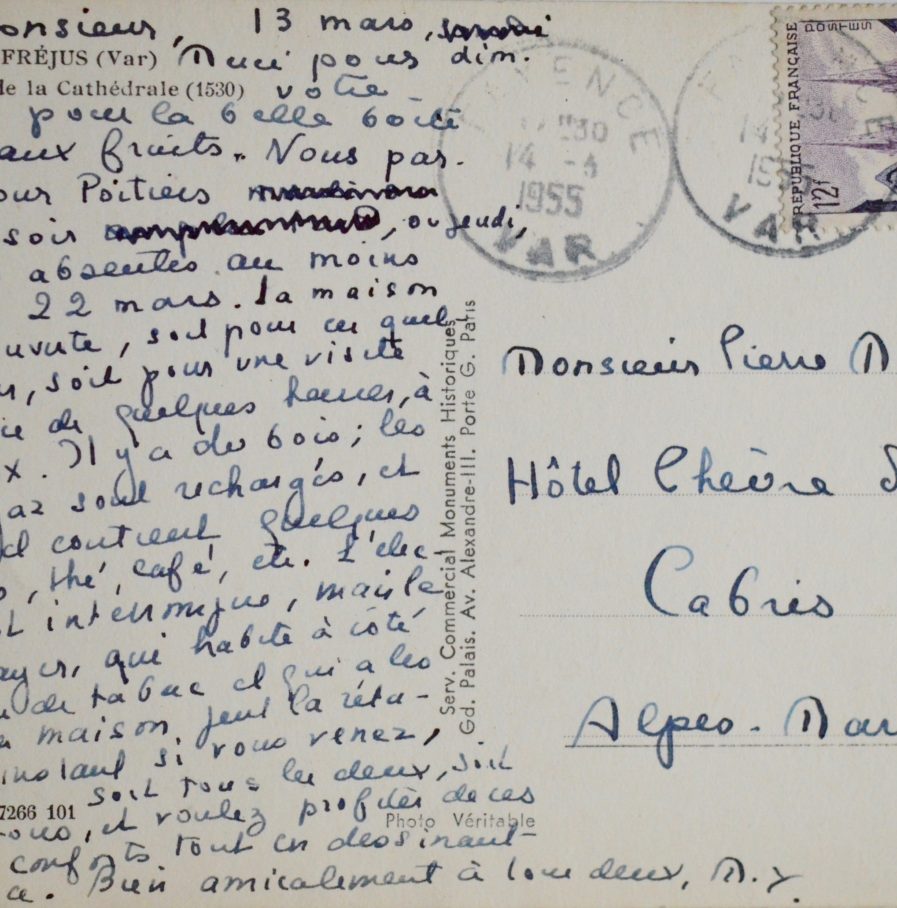 onsieur, 13 mars,
FRÉJUS (Var) Merci pour dim.
de la Cathédrale (1530) votre
pour la belle boîte
aux fruits. Nous par-
our Poitiers
soir, ou jeudi,
absentes au moins
22 mars. La maison
uverte, soit pour
, soit pour une visite
de quelques heures, à
x. Il y a du bois; les
az sont rechargés, et
contient quelques
, thé, café, etc. L'élec-
t interrompue, mais le
, qui habite à côté
de tabac et qui a les
maison, peut la réta-
instant si vous venez,
soit tous les deux, soit
7266 101
ous, et voulez profiter de ces
conforts tout en dessinant
. Bien amicalement à tous deux, M.Y.
Serv. Commercial Monuments Historiques
Gd. Palais. Av. Alexandre-III. Porte G. Paris
Photo Véritable
FAYENCE
14 -3
1955
VAR
14
VAR
POSTES
REPUBLIQUE FRANÇAISE
12f
Monsieur Pierre M
Hôtel Chèvre
Cabris
Alpes-Mar